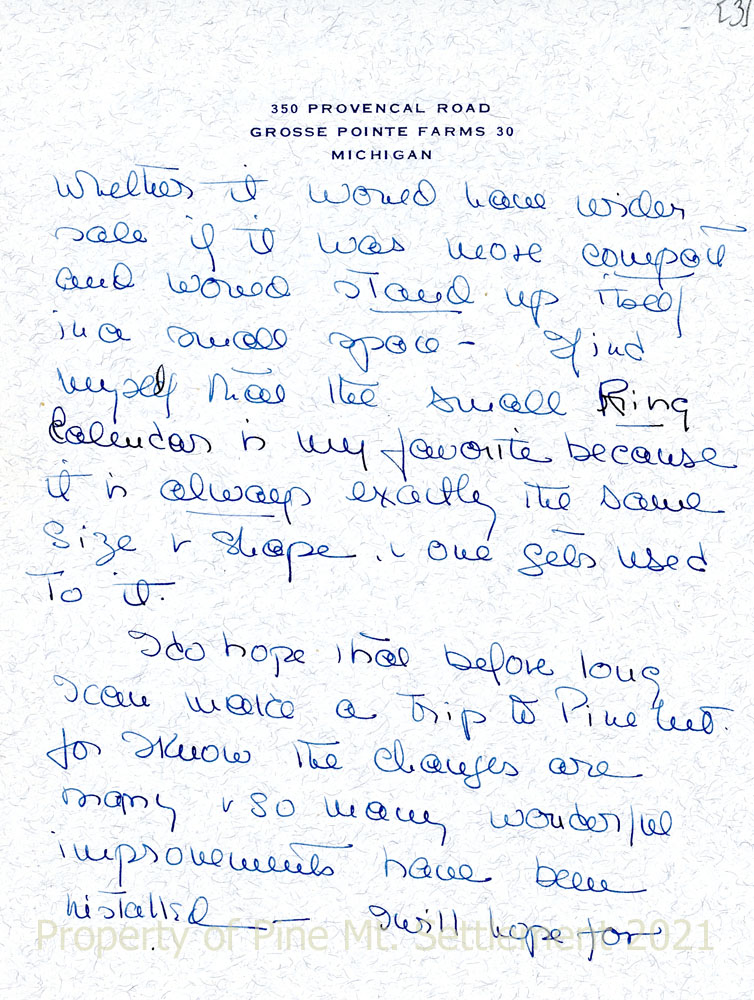 [3]
350 PROVENCAL ROAD
GROSSE POINTE FARMS 30
MICHIGAN
whether it would have wider
sale if it was more compact
and would stand up itself
in a small space - I find
myself that the small Ring
Calendar is my favorite because
it is always exactly the same
size & shape & one gets used
to it.
I do hope that before long
I can make a trip to Pine Mt.
for I know the changes are
many & so many wonderful
improvements have been
installed — I will hope for
Property of Pine Mt. Settlement 2021